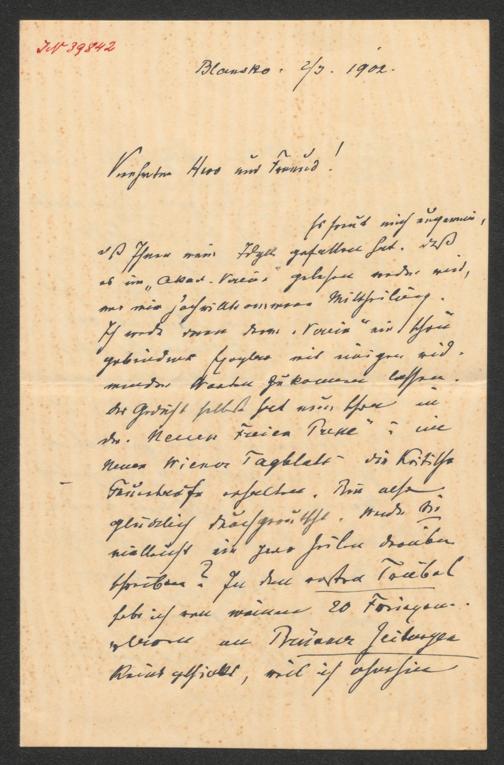 IN 39842
Blansko. 2/3. 1902.
Verehrter Herr und Freund!
Es freut mich ungemein,
daß Ihnen mein Idyll gefallen hat. Daß
es im „Akad. Verein" gelesen werden wird,
war mir hochwillkommene Mittheilung.
Ich werde dann dem „Verein" ein schön
gebundenes Exemplar mit einigen wid-
menden Worten zukommen lassen.
Das Gedicht selbst hat nun schon in
der „Neuen Freien Presse" u. im
Neuen Wiener Tagblatt die kritische
Feuertaufe erhalten. Bin also
glücklich durchgerutscht. Werden Sie
vielleicht ein paar Zeilen darüber
schreiben? In dem ersten Trubel
habe ich von meinen 20 Freiexem-
plaren an Brünner Zeitungen
Keines geschickt, weil ich ohnehin